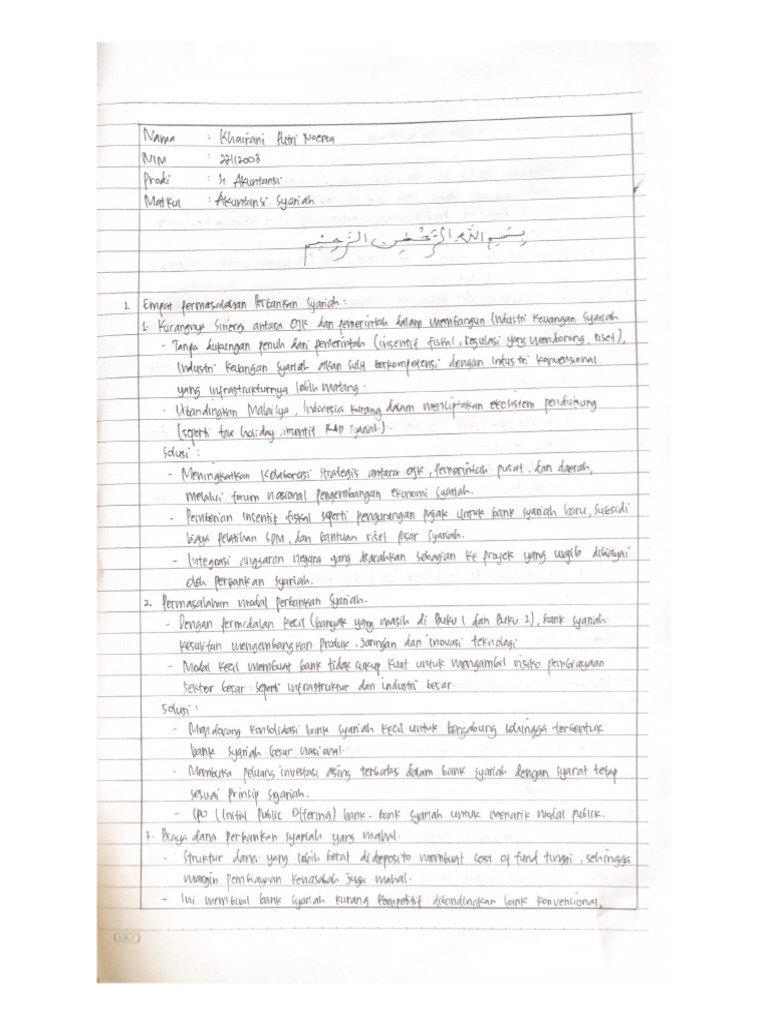 Nama : Khairani Putri
NIM : 22112003
Prodi : S1 Akuntansi
Matkul : Akuntansi Syariah
بِسْمِ اللَّهِ الرَّحْمَنِ الرَّحِيْمِ
1. Empat Permasalahan Perbankan Syariah :
1. Kurangnya Sinergi antara OJK dan pemerintah dalam membangun Industri Keuangan Syariah
- Tanpa dukungan penuh dari pemerintah (insentif fiskal, regulasi yang mendorong, riset),
Industri keuangan syariah akan sulit berkompetensi dengan industri konvensional
yang infrastrukturnya lebih matang.
- Dibandingkan Malaisya, Indonesia kurang dalam menciptakan ekosistem pendukung
(seperti tax holiday, insentif R&D syariah)
Solusi :
- Meningkatkan Kolaborasi strategis antara OJK, pemerintah pusat, dan daerah,
melalui forum nasional pengembangan ekonomi syariah.
- Pemberian insentif fiskal seperti pengurangan pajak untuk bank syariah baru, subsidi
biaya pelatihan SDM, dan bantuan riset pasar syariah.
- Integrasi anggaran negara yang diarahkan sebagian ke projek yang wajib dibiayai
oleh perbankan syariah.
2. Permasalahan modal perbankan syariah.
- Dengan permodalan kecil (banyak yang masih di Buku 1 dan Buku 2), bank syariah
kesulitan mengembangkan produk, jaringan dan inovasi teknologi
- Modal kecil membuat bank tidak cukup kuat untuk mengambil risiko pembiayaan
sektor besar seperti infrastruktur dan industri besar.
Solusi :
- Mendorong konsolidasi bank syariah kecil untuk bergabung sehingga terbentuk
bank syariah besar nasional.
- Membuka peluang investasi asing terbatas dalam bank syariah dengan syarat tetap
sesuai prinsip syariah.
- IPO (Initial Public Offering) bank-bank syariah untuk menarik modal publik.
3. Biaya dana perbankan syariah yang mahal.
- Struktur dana yang lebih berat di deposito membuat cost of fund tinggi, sehingga
margin pembiayaan kenasabah juga mahal.
- Ini membuat bank syariah kurang kompetitif dibandingkan bank konvensional.